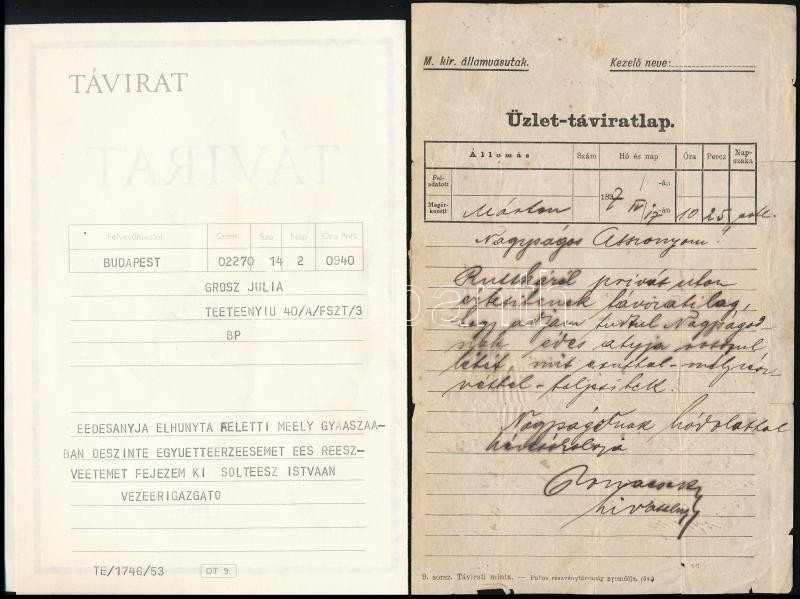 TÁVIRAT
TÁVIRAT
Felvevőhivatal Szám Szó Nap Óra Perc
BUDAPEST 02270 14 2 0940
GROSZ JULIA
TEETEENYIU 40/A/FSZT/3
BP
EEDESANYJA ELHUNYTA FELETTI MEELY GYAASZAA-
BAN OESZINTE EGYUETTEERZEESEMET EES REESZ-
VEETEMET FEJEZEM KI SOLTEESZ ISTVAAN
VEZEERIGAZGATO
TE/1746/53 DT 9
M. kir. államvasutak. Kezelő neve:
Üzlet-táviratlap.
Állomás Szám Hó és nap Óra Percz Nap-
szaka
Fel-
adatott -án
Megér-
kezett Márton 1897 IV/17-án 10 25
Nagyságos Asszonyom!
Ruttkáról privát uton
értesitenek táviratilag,
hogy adjam tudtul Nagyságod-
nak édes atyja rosszul
létét, mit ezuttal
teljesitek.
Nagyságodnak hódolattal
9. sorsz. Távirati minta. – Pallas részvénytársaság nyomdája. (öv.)